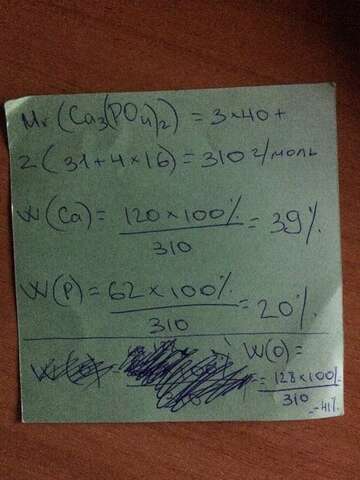 Mr (Ca3(PO4)2) = 3×40+
2(31+4×16)=310 г/моль
W(Ca)= 120×100% / 310 = 39%.
W(P)= 62×100% / 310 = 20%.
W(O)=
= 128×100% / 310
- 41%